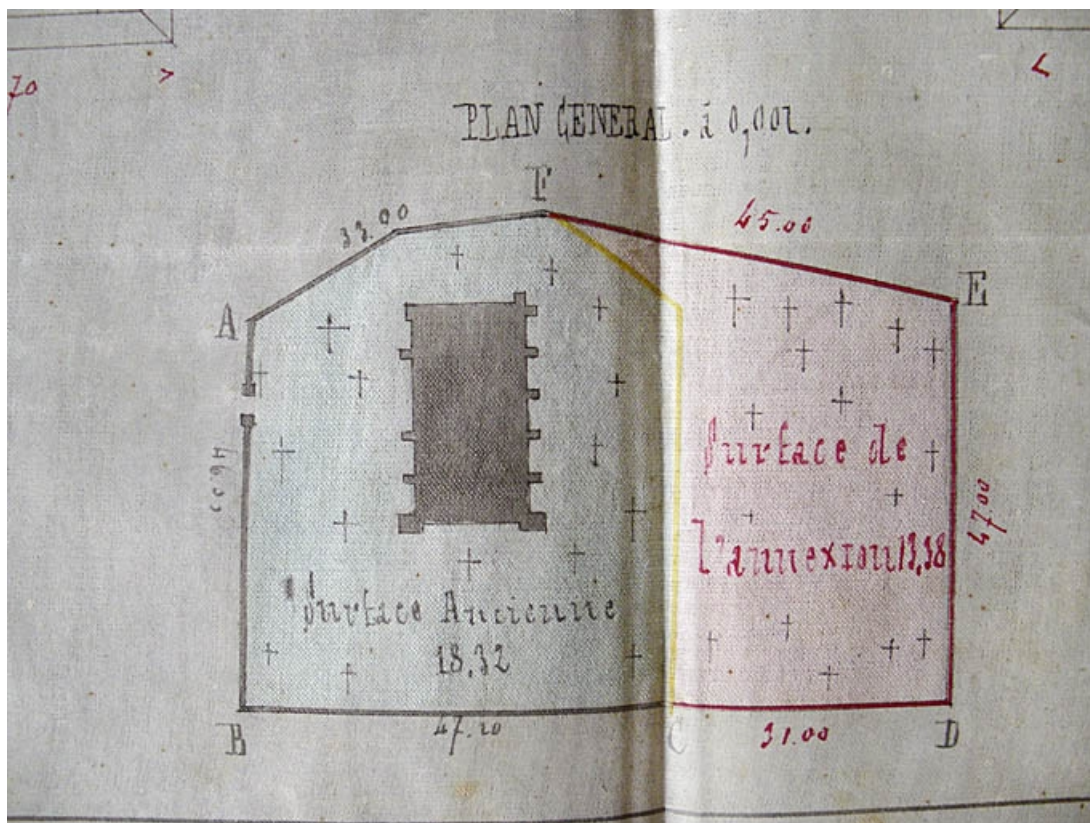 70
PLAN GENERAL. à 0,002.
F
33.00
45.00
A
E
Surface de
l'annexion 13,38
47.00
Surface Ancienne
18.32
B
47.20
C
31.00
D